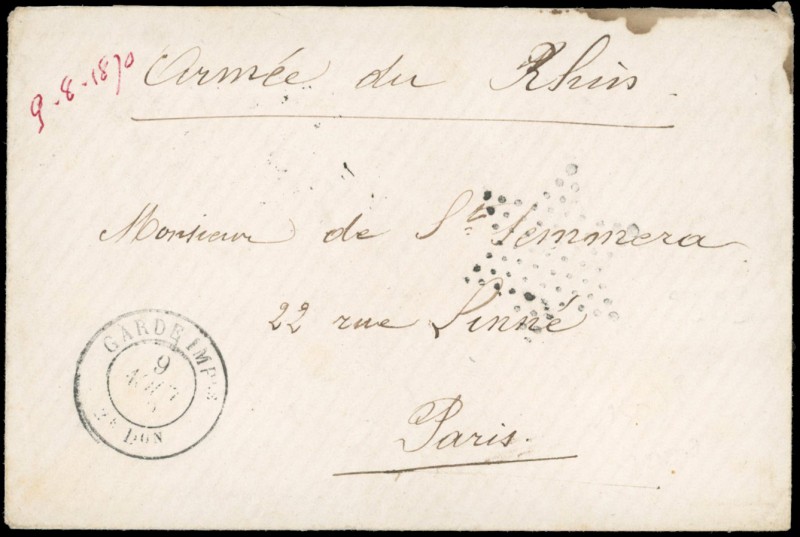 Armée du Rhin
9-8-1870
Monsieur de St. Semmera
22 rue Linné
Paris.
GARDE IMPLE
9
AOUT
2E DON